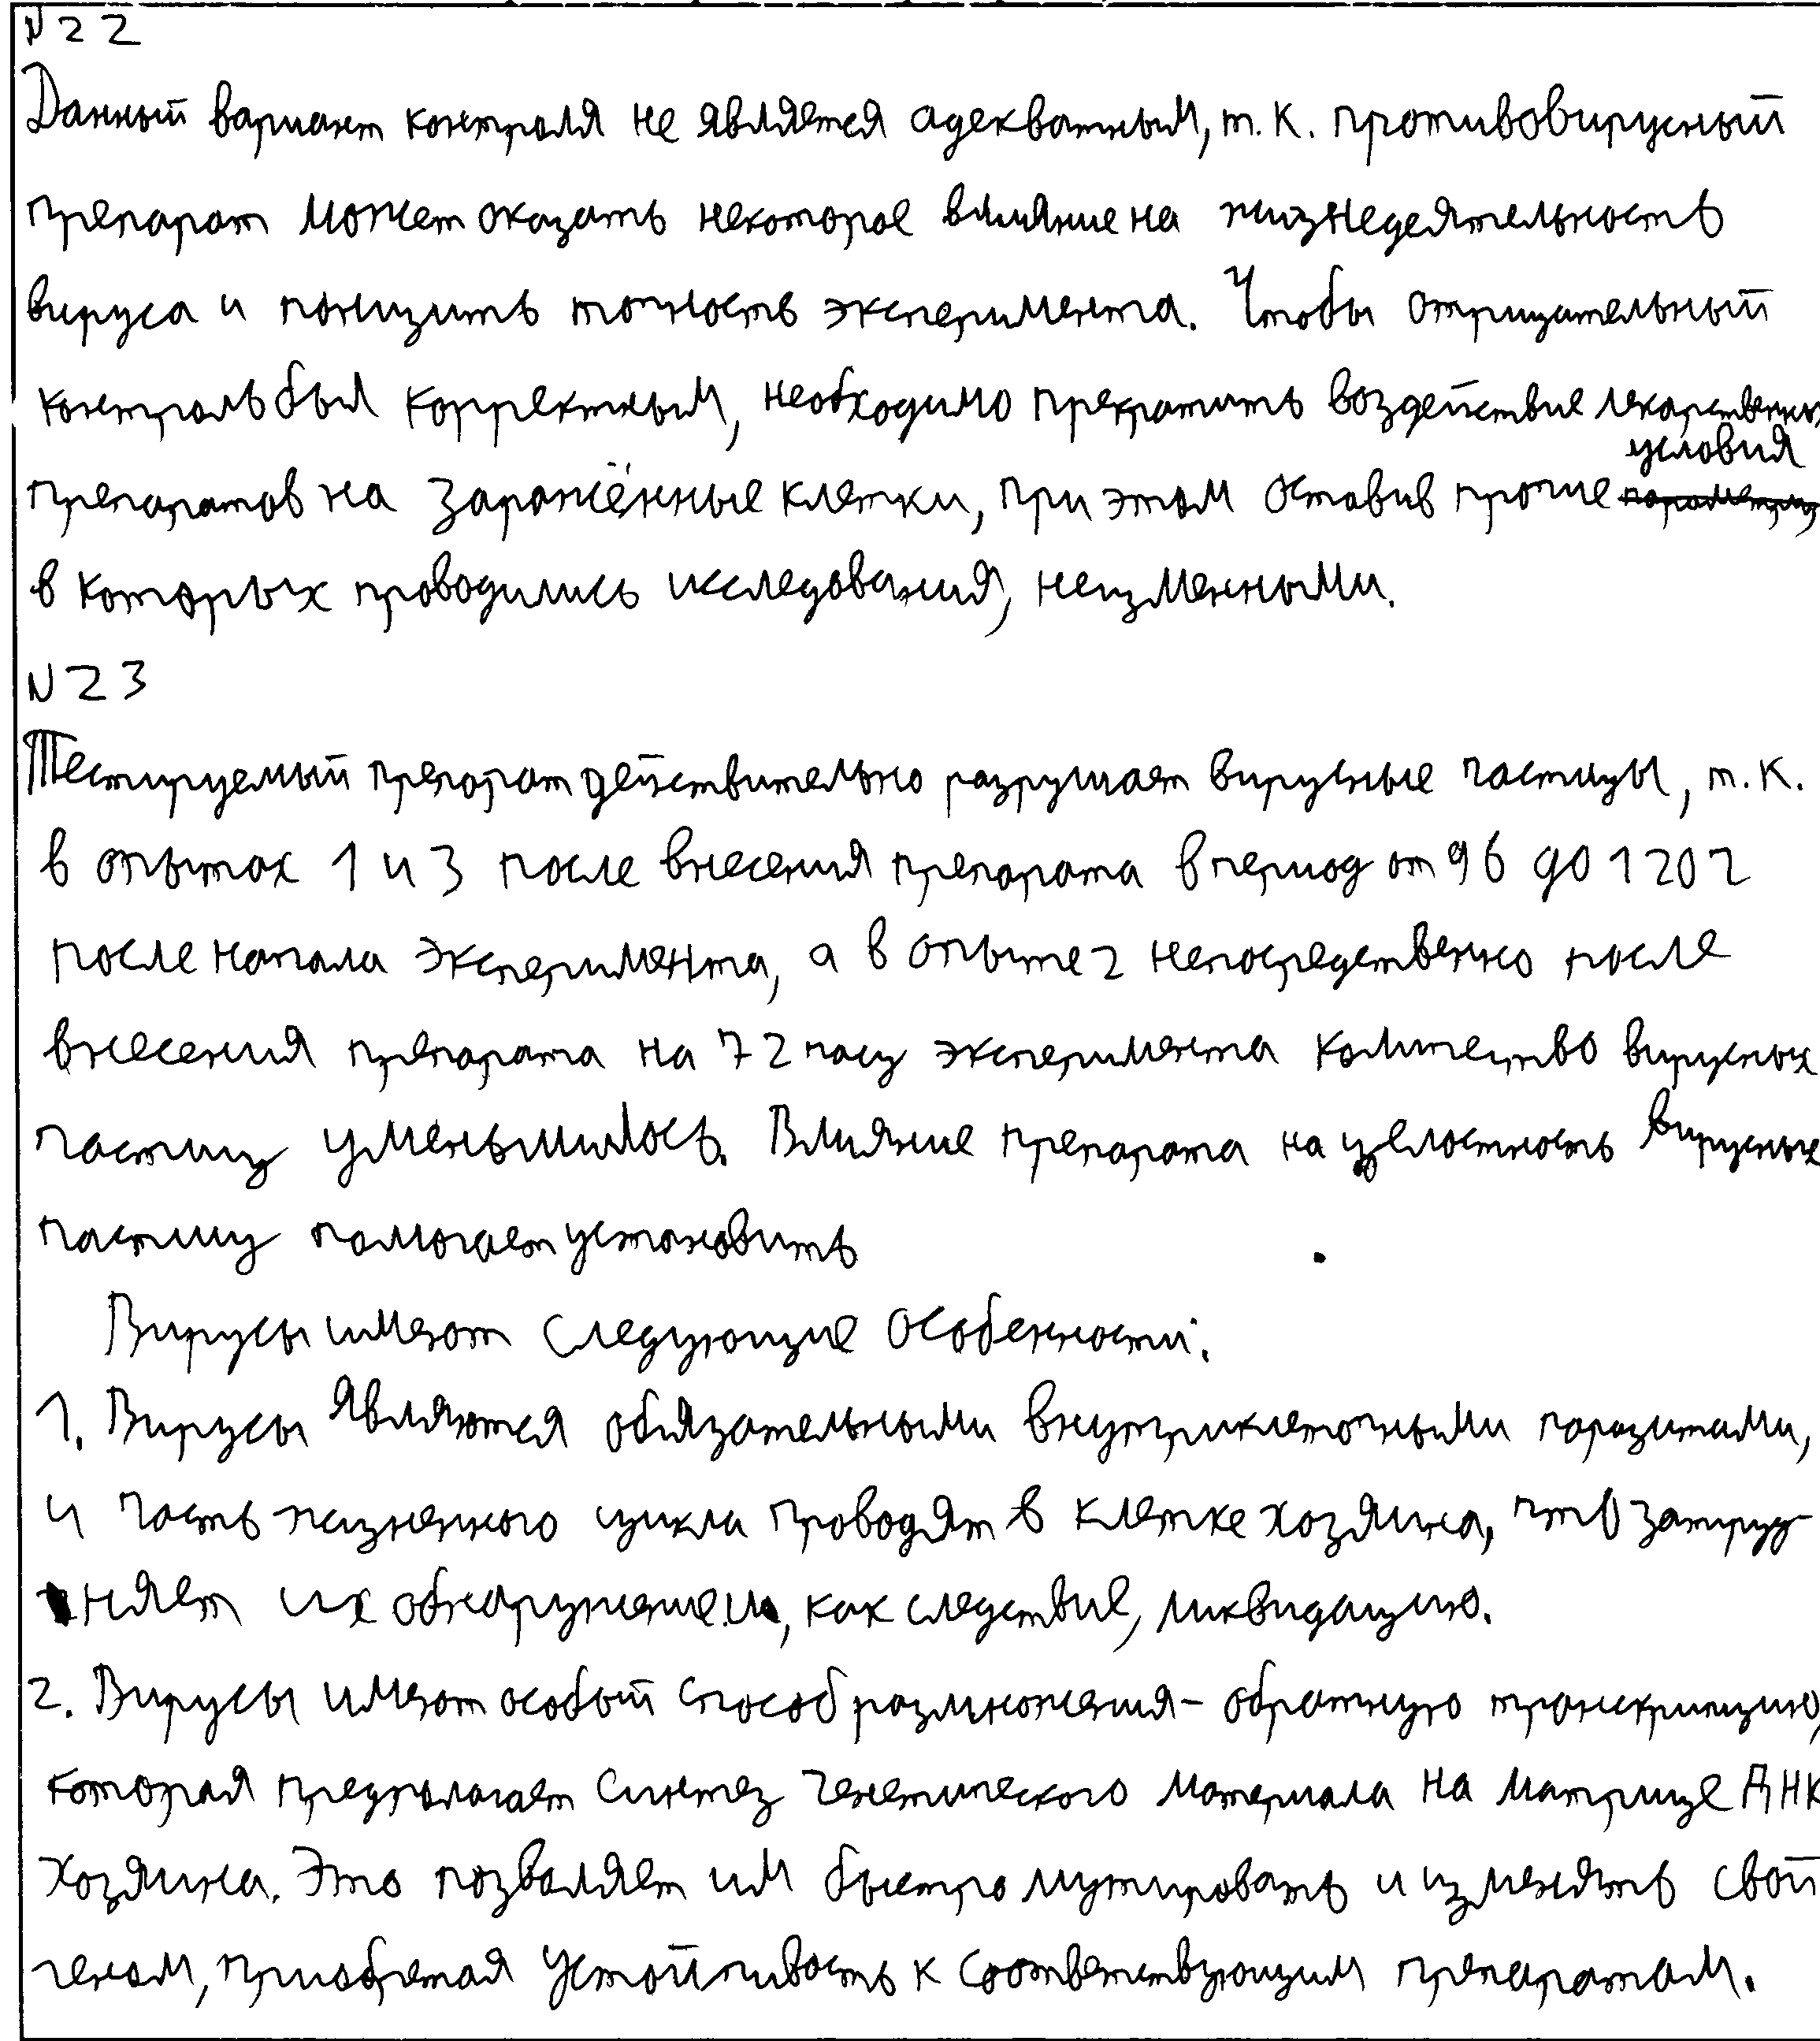 N22
Данный вариант контроля не является адекватным, т.к. противовирусный
препарат может оказать некоторое влияние на жизнедеятельность
вируса и понизить точность эксперимента. Чтобы отрицательный
контроль был корректным, необходимо прекратить воздействие лекарственных
условия
препаратов на заражённые клетки, при этом оставив прочие параметры,
в которых проводились исследования, неизменными.
N23
Тестируемый препарат действительно разрушает вирусные частицы, т.к.
в опытах 1 и 3 после внесения препарата в период от 96 до 120 ч
после начала эксперимента, а в опыте 2 непосредственно после
внесения препарата на 72 часу эксперимента количество вирусных
частиц уменьшилось. Влияние препарата на целостность вирусных
частиц помогает установить
Вирусы имеют следующие особенности:
1. Вирусы являются обязательными внутриклеточными паразитами,
и часть жизненного цикла проводят в клетке хозяина, что затруд-
няет их обнаружение и, как следствие, ликвидацию.
2. Вирусы имеют особый способ размножения - обратную транскрипцию,
которая предполагает синтез генетического материала на матрице ДНК
хозяина. Это позволяет им быстро мутировать и изменять свой
геном, приобретая устойчивость к соответствующим препаратам.